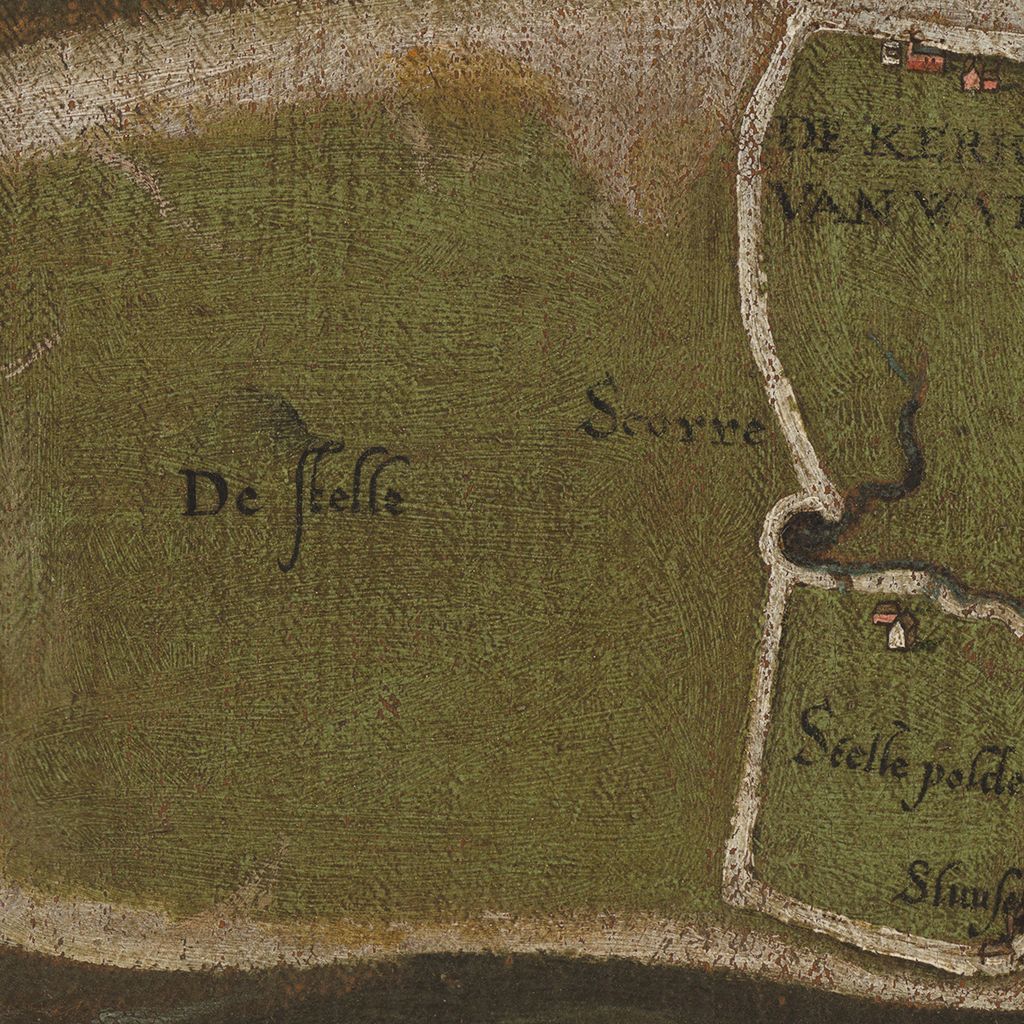 DE KERK
VAN WAT
Scorre
De stelle
Stelle polde
Sluuse